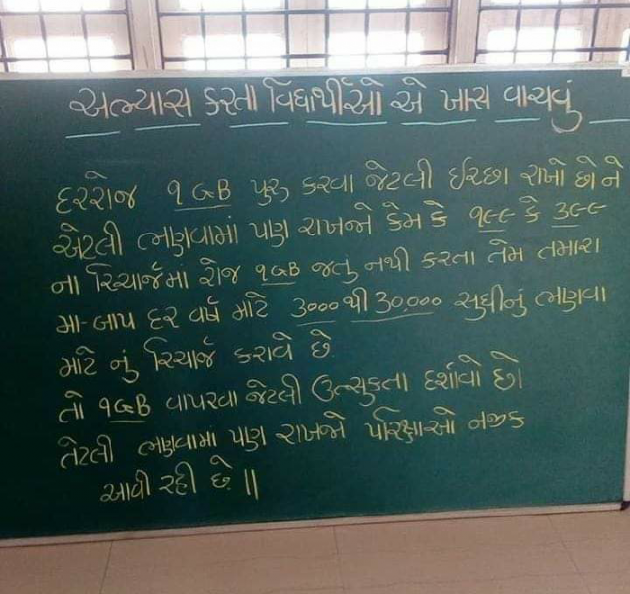 અભ્યાસ કરતા વિદ્યાર્થીઓ એ ખાસ વાચવું
દરરોજ ૧ GB પુરુ કરવા જેટલી ઈચ્છા રાખો છો ને
એટલી ભણવામાં પણ રાખજો કેમ કે ૧૯૯ કે ૩૯૯
ના રિચાર્જમા રોજ ૧GB જતુ નથી કરતા તેમ તમારા
મા-બાપ દર વર્ષ માટે ૩૦૦૦ થી ૩૦,૦૦૦ સુધીનું ભણવા
માટે નું રિચાર્જ કરાવે છે.
તો ૧GB વાપરવા જેટલી ઉત્સુકતા દર્શાવો છો
તેટલી ભણવામાં પણ રાખજો પરિક્ષાઓ નજીક
આવી રહી છે ||